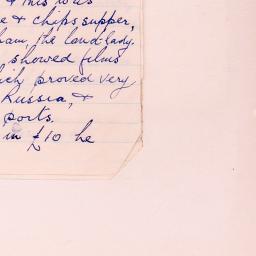 & this was
e & chips supper,
ham, the land-lady.
showed films
ich proved very
Russia, &
ports.
in £10 he